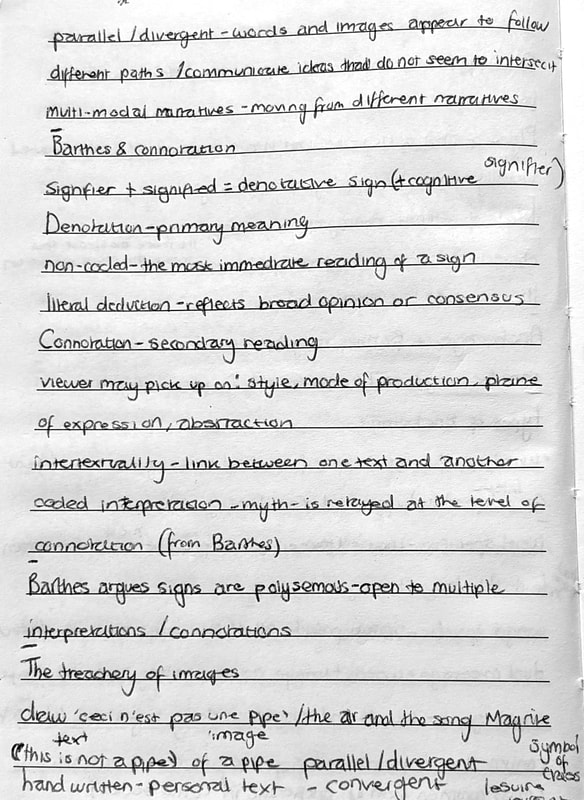 parallel / divergent - words and images appear to follow
different paths / communicate ideas that do not seem to intersect
multi-modal narratives - moving from different narratives
Barthes & connotation
signifier + signified = denotative sign (+ cognitive signifier)
Denotation - primary meaning
non-coded - the most immediate reading of a sign
literal deduction - reflects broad opinion or consensus
Connotation - secondary reading
viewer may pick up on: style, mode of production, plane
of expression, abstraction
intertextuality - link between one text and another
coded interpretation - myth - is relayed at the level of
connotation (from Barthes)
Barthes argues signs are polysemous - open to multiple
interpretations / connotations
The treachery of images
draw 'ceci n'est pas une pipe' / the air and the song Magritte
text image symbol
(this is not a pipe) of a pipe parallel / divergent of
handwritten - personal text - convergent leisure